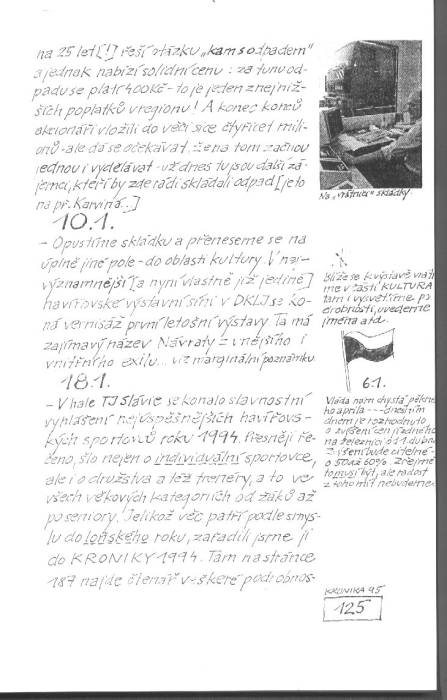 na 25 let [!] řeší otázku „kam s odpadem"
a jednak nabízí solidní cenu: za tunu od-
padu se platí 400Kč - to je jeden z nejniž-
ších poplatků v regionu! A konec konců
akcionáři vložili do věci sice čtyřicet mili-
onů - ale dá se očekávat, že na tom začnou
jednou i vydělávat - už dnes tu jsou další zá-
jemci, kteří by zde rádi skládali odpad [je to
na př. Karviná..]
10.1.
- Opustíme skládku a přeneseme se na
úplně jiné pole - do oblasti kultury. V nej-
významnější [a nyní vlastně již jediné]
havířovské výstavní síni v DKLJ se ko-
ná vernisáž první letošní výstavy. Ta má
zajímavý název Návraty z vnějšího i
vnitřního exilu... viz marginální poznámku
18.1.
- V hale TJ Slávie se konalo slavnostní
vyhlášení nejúspěšnějších havířovs-
kých sportovců roku 1994. Přesněji ře-
čeno, šlo nejen o individuální sportovce,
ale i o družstva a též trenéry, a to ve
všech věkových kategoriích od žáků až
po seniory! Jelikož věc patří podle smys-
lu do loňského roku, zařadili jsme ji
do KRONIKY 1994. Tam na stránce
187 najde čtenář veškeré podrobnos-
Na „vrátnici" skládky.
Blíže se k výstavě vrátí-
me v části KULTURA
tam i vysvětlíme po
drobnosti, uvedeme
jména atd.
6.1.
Vláda nám chystá pěkné-
ho aprila --- dnešním
dnem je rozhodnuto
o zvýšení cen jízdného
na železnici od 1. dubna
Zvýšení bude citelné -
o 50 až 60%. Zřejmě
to musí být, ale radost
z toho mít nebudeme.
KRONIKA 95
125